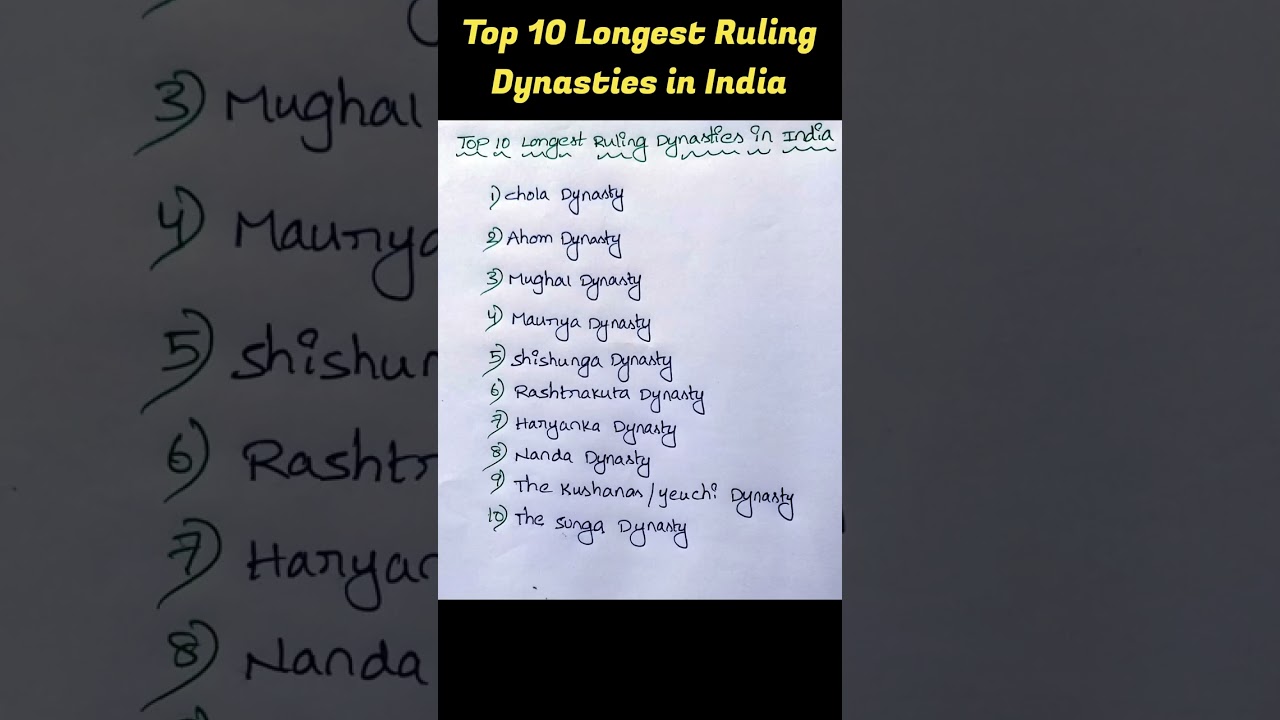 Top 10 Longest Ruling
Dynasties in India
TOP 10 Longest Ruling Dynasties in India
1) Chola Dynasty
2) Ahom Dynasty
3) Mughal Dynasty
4) Maurya Dynasty
5) Shishunga Dynasty
6) Rashtrakuta Dynasty
7) Haryanka Dynasty
8) Nanda Dynasty
9) The Kushanas/yeuchi Dynasty
10) The Sunga Dynasty
3) Mughal
4) Maurya
5) Shishun
6) Rasht
7) Haryan
8) Nanda